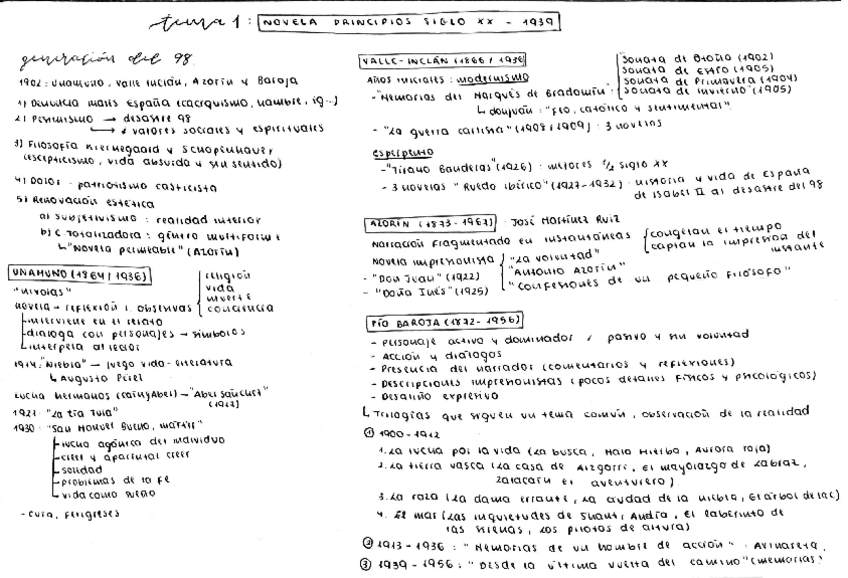 tema 1: NOVELA PRINCIPIOS SIGLO XX - 1939
generación del 98
1902: Unamuno, Valle Inclán, Azorín y Baroja
1) Denuncia males España (caciquismo, hambre, ig...)
2) Pesimismo → desastre 98
→ valores sociales y espirituales
3) Filosofía Kierkegaard y Schopenhauer
(escepticismo, vida absurda y sin sentido)
4) Dolor - patriotismo casticista
5) Renovación estética
a) subjetivismo: realidad interior
b) C totalizadora: género multiforme
↳ "Novela permeable" (Azorín)
UNAMUNO (1864/1936)
"nivolas"
novela → reflexión i. obsesivas
religión
vida
muerte
conciencia
interviene en el relato
dialoga con personajes → símbolos
interpela al lector
1914: "Niebla" → juego vida-literatura
↳ Augusto Pérez
Lucha hermanos (Caín y Abel) → "Abel Sánchez"
(1917)
1921: "La tía Tula"
1930: "San Manuel Bueno, mártir"
lucha agónica del individuo
creer y aparentar creer
soledad
problemas de la fe
vida como sueño
- cura, feligreses
VALLE-INCLÁN (1866/1936)
Años iniciales: modernismo
- "Memorias del Marqués de Bradomín":
"Sonata de Otoño (1902)
Sonata de Estío (1903)
Sonata de Primavera (1904)
Sonata de Invierno" (1905)
↳ donjuán: "feo, católico y sentimental"
- "La guerra carlista" (1908/1909): 3 novelas
esperpento
- "Tirano Banderas" (1926): mejores 1/2 siglo XX
- 3 novelas "Ruedo Ibérico" (1927-1932): historia y vida de España
de Isabel II al desastre del 98
AZORÍN (1873-1967): José Martínez Ruiz
Narración fragmentada en instantáneas
congelan el tiempo
captan la impresión del
instante
Novela impresionista
"La voluntad"
"Antonio Azorín"
"Confesiones de un pequeño filósofo"
- "Don Juan" (1922)
- "Doña Inés" (1925)
PÍO BAROJA (1872-1956)
- Personaje activo y dominador / pasivo y sin voluntad
- Acción y diálogos
- Presencia del narrador (comentarios y reflexiones)
- Descripciones impresionistas (pocos detalles físicos y psicológicos)
- Desaliño expresivo
↳ Trilogías que siguen un tema común, observación de la realidad
① 1900-1912
1. La lucha por la vida (La busca, Mala hierba, Aurora roja)
2. La tierra vasca (La casa de Aizgorri, el mayorazgo de Labraz,
Zalacaín el aventurero)
3. La raza (La dama errante, La ciudad de la niebla, El árbol de la C)
4. El mar (Las inquietudes de Shanti Andía, El laberinto de
las sirenas, Los pilotos de altura)
② 1913-1936: "Memorias de un hombre de acción": Avinareta
③ 1939-1956: "Desde la última vuelta del camino" (memorias)